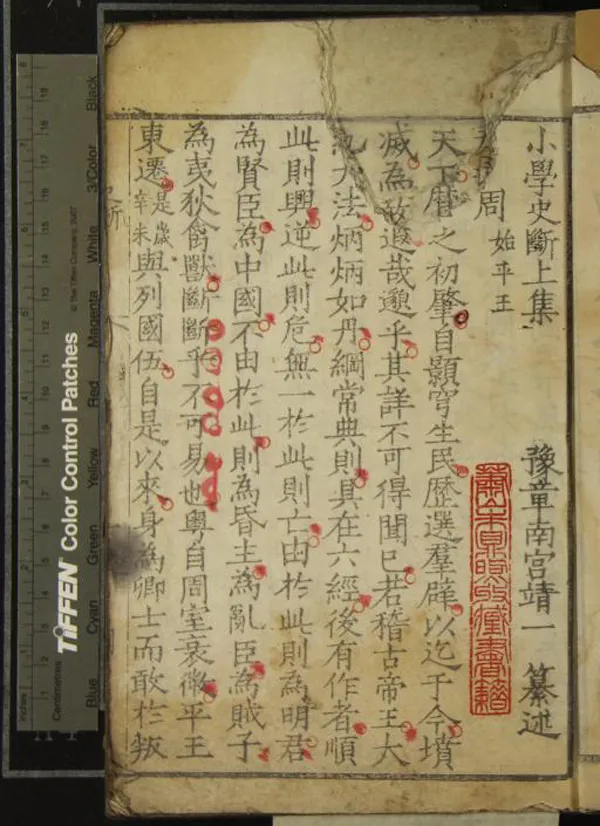 小學史斷上集 豫章南宫靖一 纂述
周 始平王
天下曆之初肇自顥穹生民歷選羣辟以迄于今墳
滅為故遐哉邈乎其詳不可得聞已若稽古帝王大
大法炳炳如丹綱常典則具在六經後有作者順
此則興逆此則危無一於此則亡由於此則為明君
為賢臣為中國不由於此則為昏主為亂臣為賊子
為夷狄禽獸斷斷乎不可易也粤自周室衰微平王
東遷是歲辛未與列國伍自是以來身為卿士而敢於叛
蕭山朱鼎煦收藏書籍
TIFFEN Color Control Patches
© The Tiffen Company, 2007
Blue Cyan Green Yellow Red Magenta White 3/Color Black
Inches
Centimetres